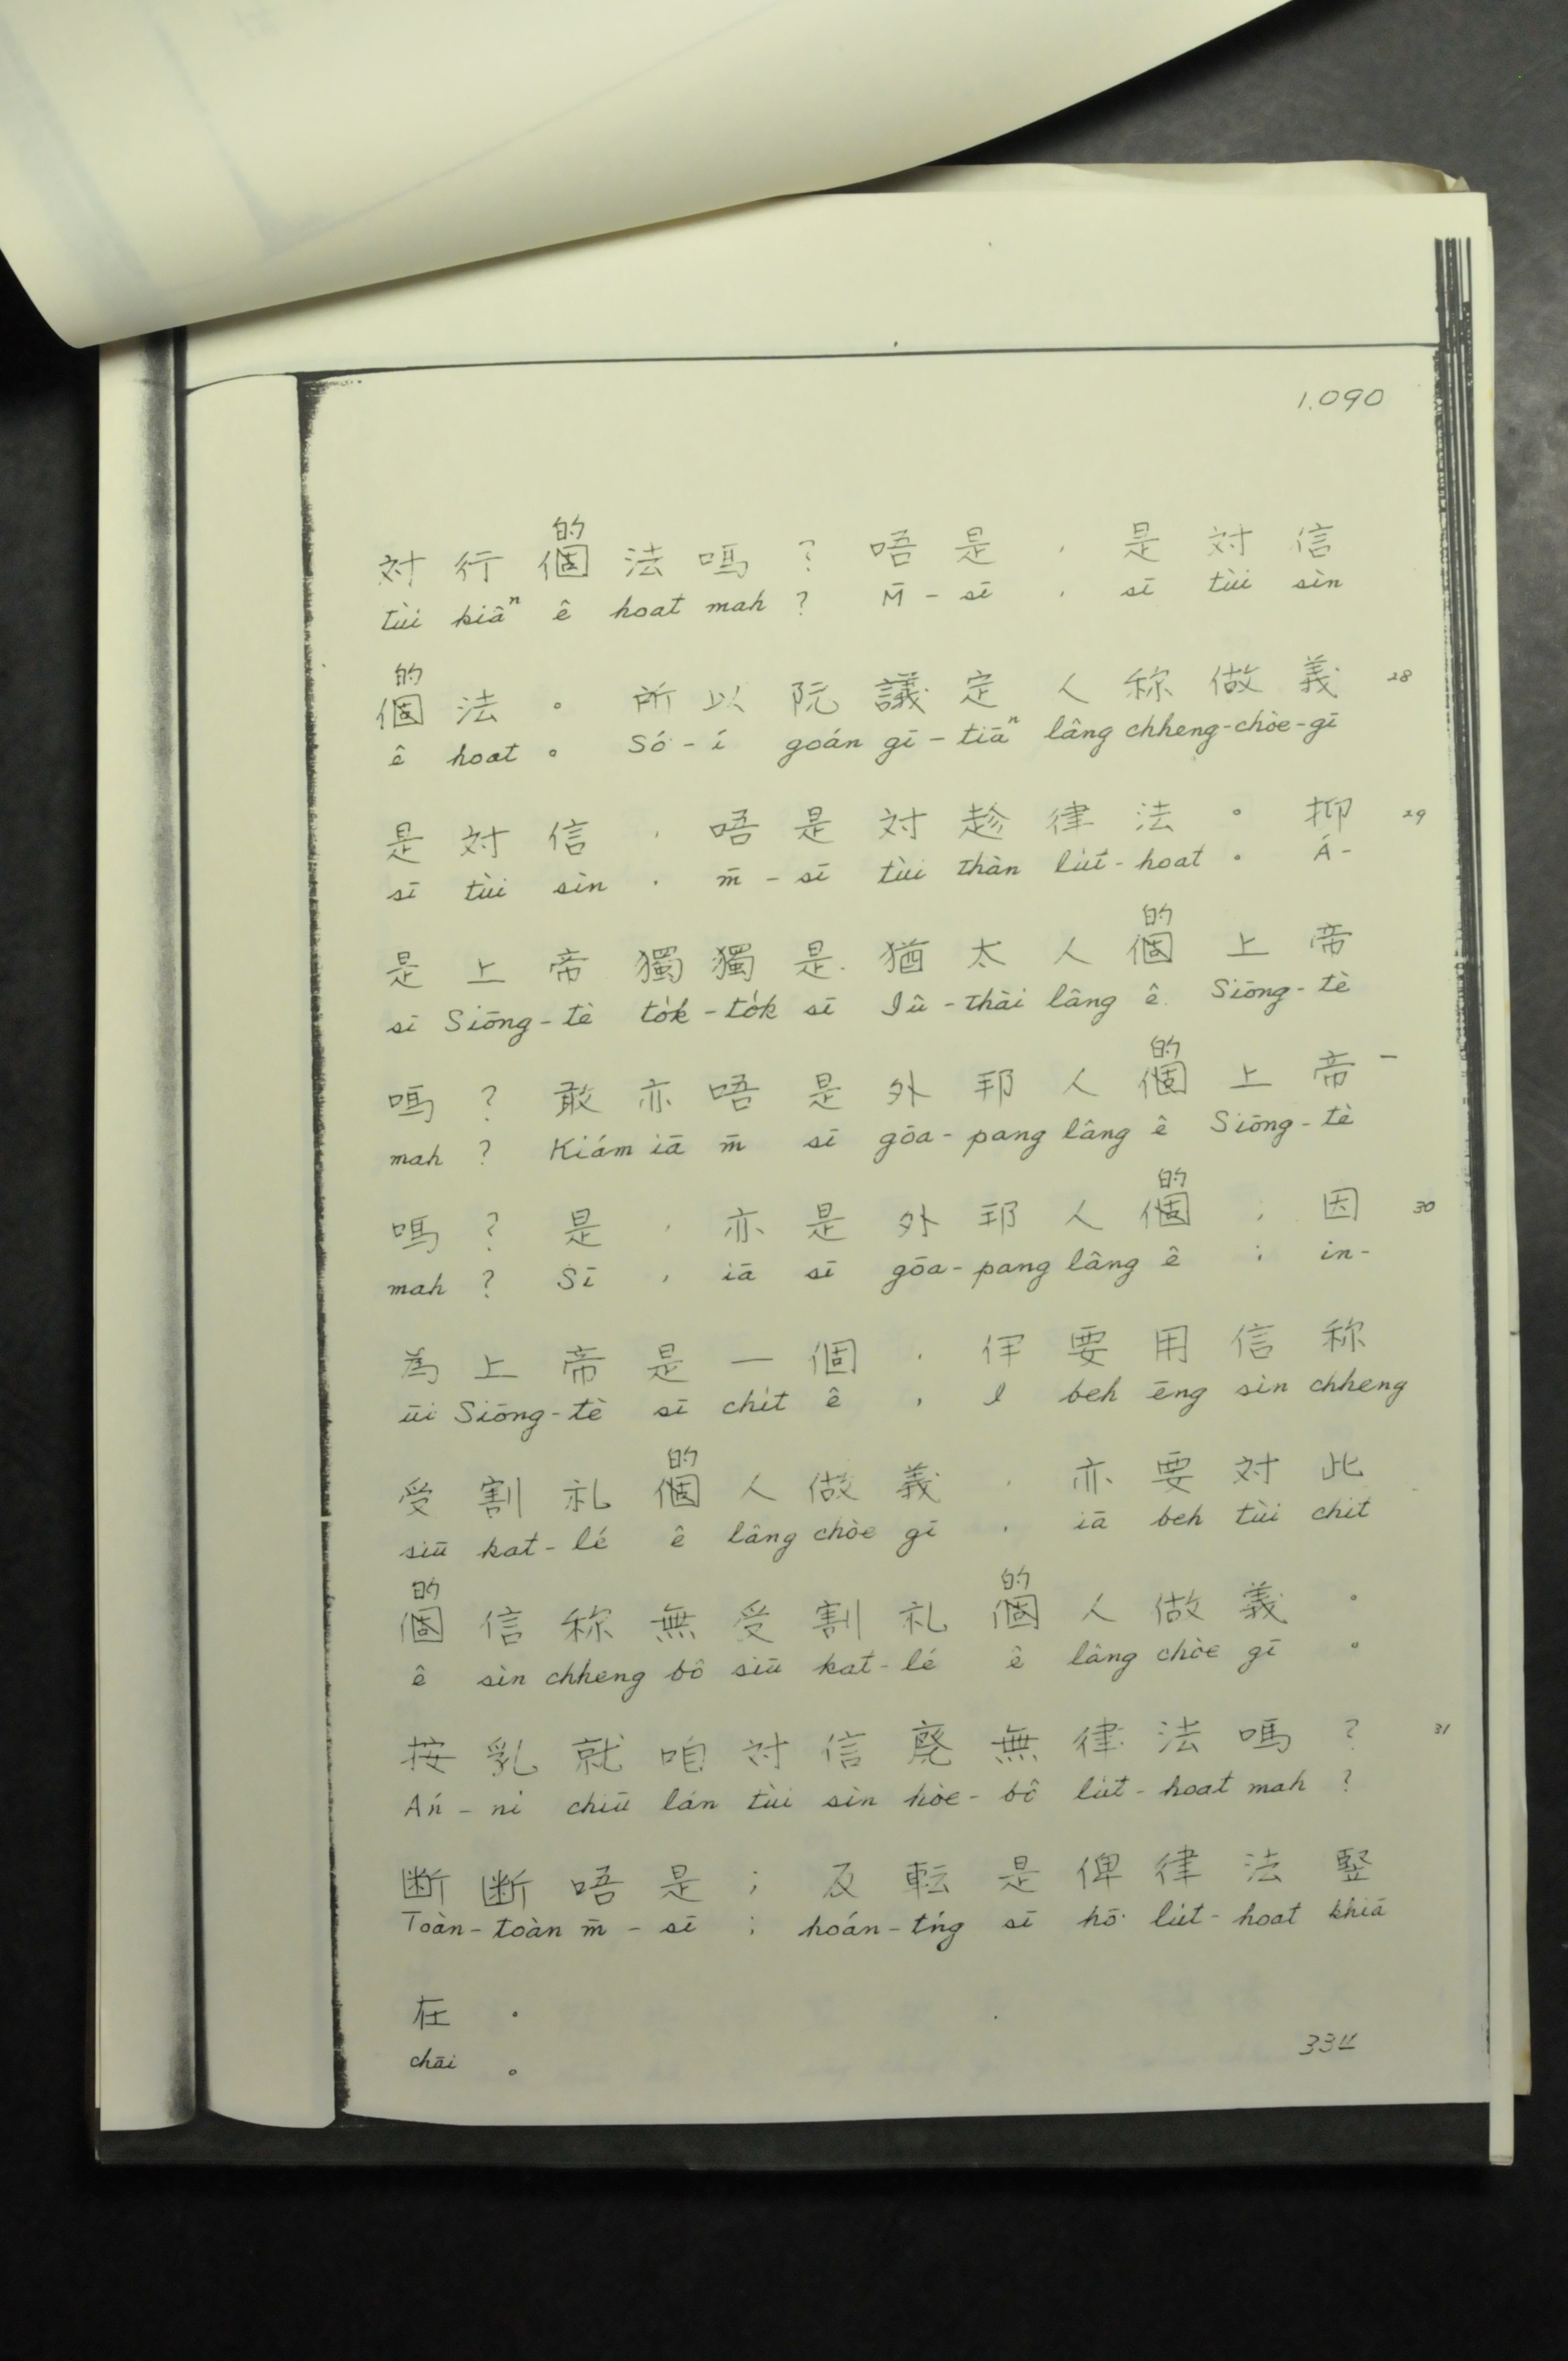 1.090
的
対行個法嗎？唔是，是対信
tùi kiâⁿ ê hoat mah ? M̄-sī , sī tùi sìn
的
個法。所以阮議定人称做義 28
ê hoat 。 Só͘-í goán gī-tiāⁿ lâng chheng-chòe-gī
是対信，唔是対趁律法。抑 29
sī tùi sìn , m̄-sī tùi thàn lu̍t-hoat 。 Á-
的
是上帝獨獨是猶太人個上帝
sī Siōng-tè to̍k-to̍k sī Iû-thài lâng ê Siōng-tè
的
嗎？敢亦唔是外邦人個上帝
mah ? Kiám iā m̄ sī gōa-pang lâng ê Siōng-tè
的
嗎？是，亦是外邦人個；因 30
mah ? Sī , iā sī gōa-pang lâng ê ; in-
為上帝是一個，伊要用信称
ūi Siōng-tè sī chi̍t ê , I beh ēng sìn chheng
的
受割礼個人做義，亦要対此
siū kat-lé ê lâng chòe gī , iā beh tùi chit
的 的
個信称無受割礼個人做義。
ê sìn chheng bô siū kat-lé ê lâng chòe gī 。
按乳就咱対信廃無律法嗎？ 31
Án-ni chiū lán tùi sìn hòe-bô lu̍t-hoat mah ?
断断唔是；反転是俾律法竪
Toàn-toàn m̄-sī ; hoán-tńg sī hō͘ lu̍t-hoat khiā
在。
chāi 。
334